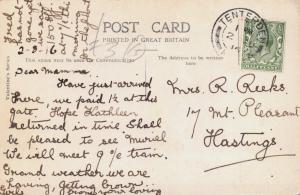 POST CARD
PRINTED IN GREAT BRITAIN
This space may be used for communication.
The address only to be written here.
Valentine's Series
TENTERDEN
2-8-16
Dear Mamma
Have just arrived
here, we paid 1/2 at this
gate. Hope Kathleen
returned in time Shall
be pleased to see Muriel
We will meet 9 % team.
Grand weather we are
having, getting brown
Mrs. R. Reeks.
17 Mt. Pleasant
Hastings